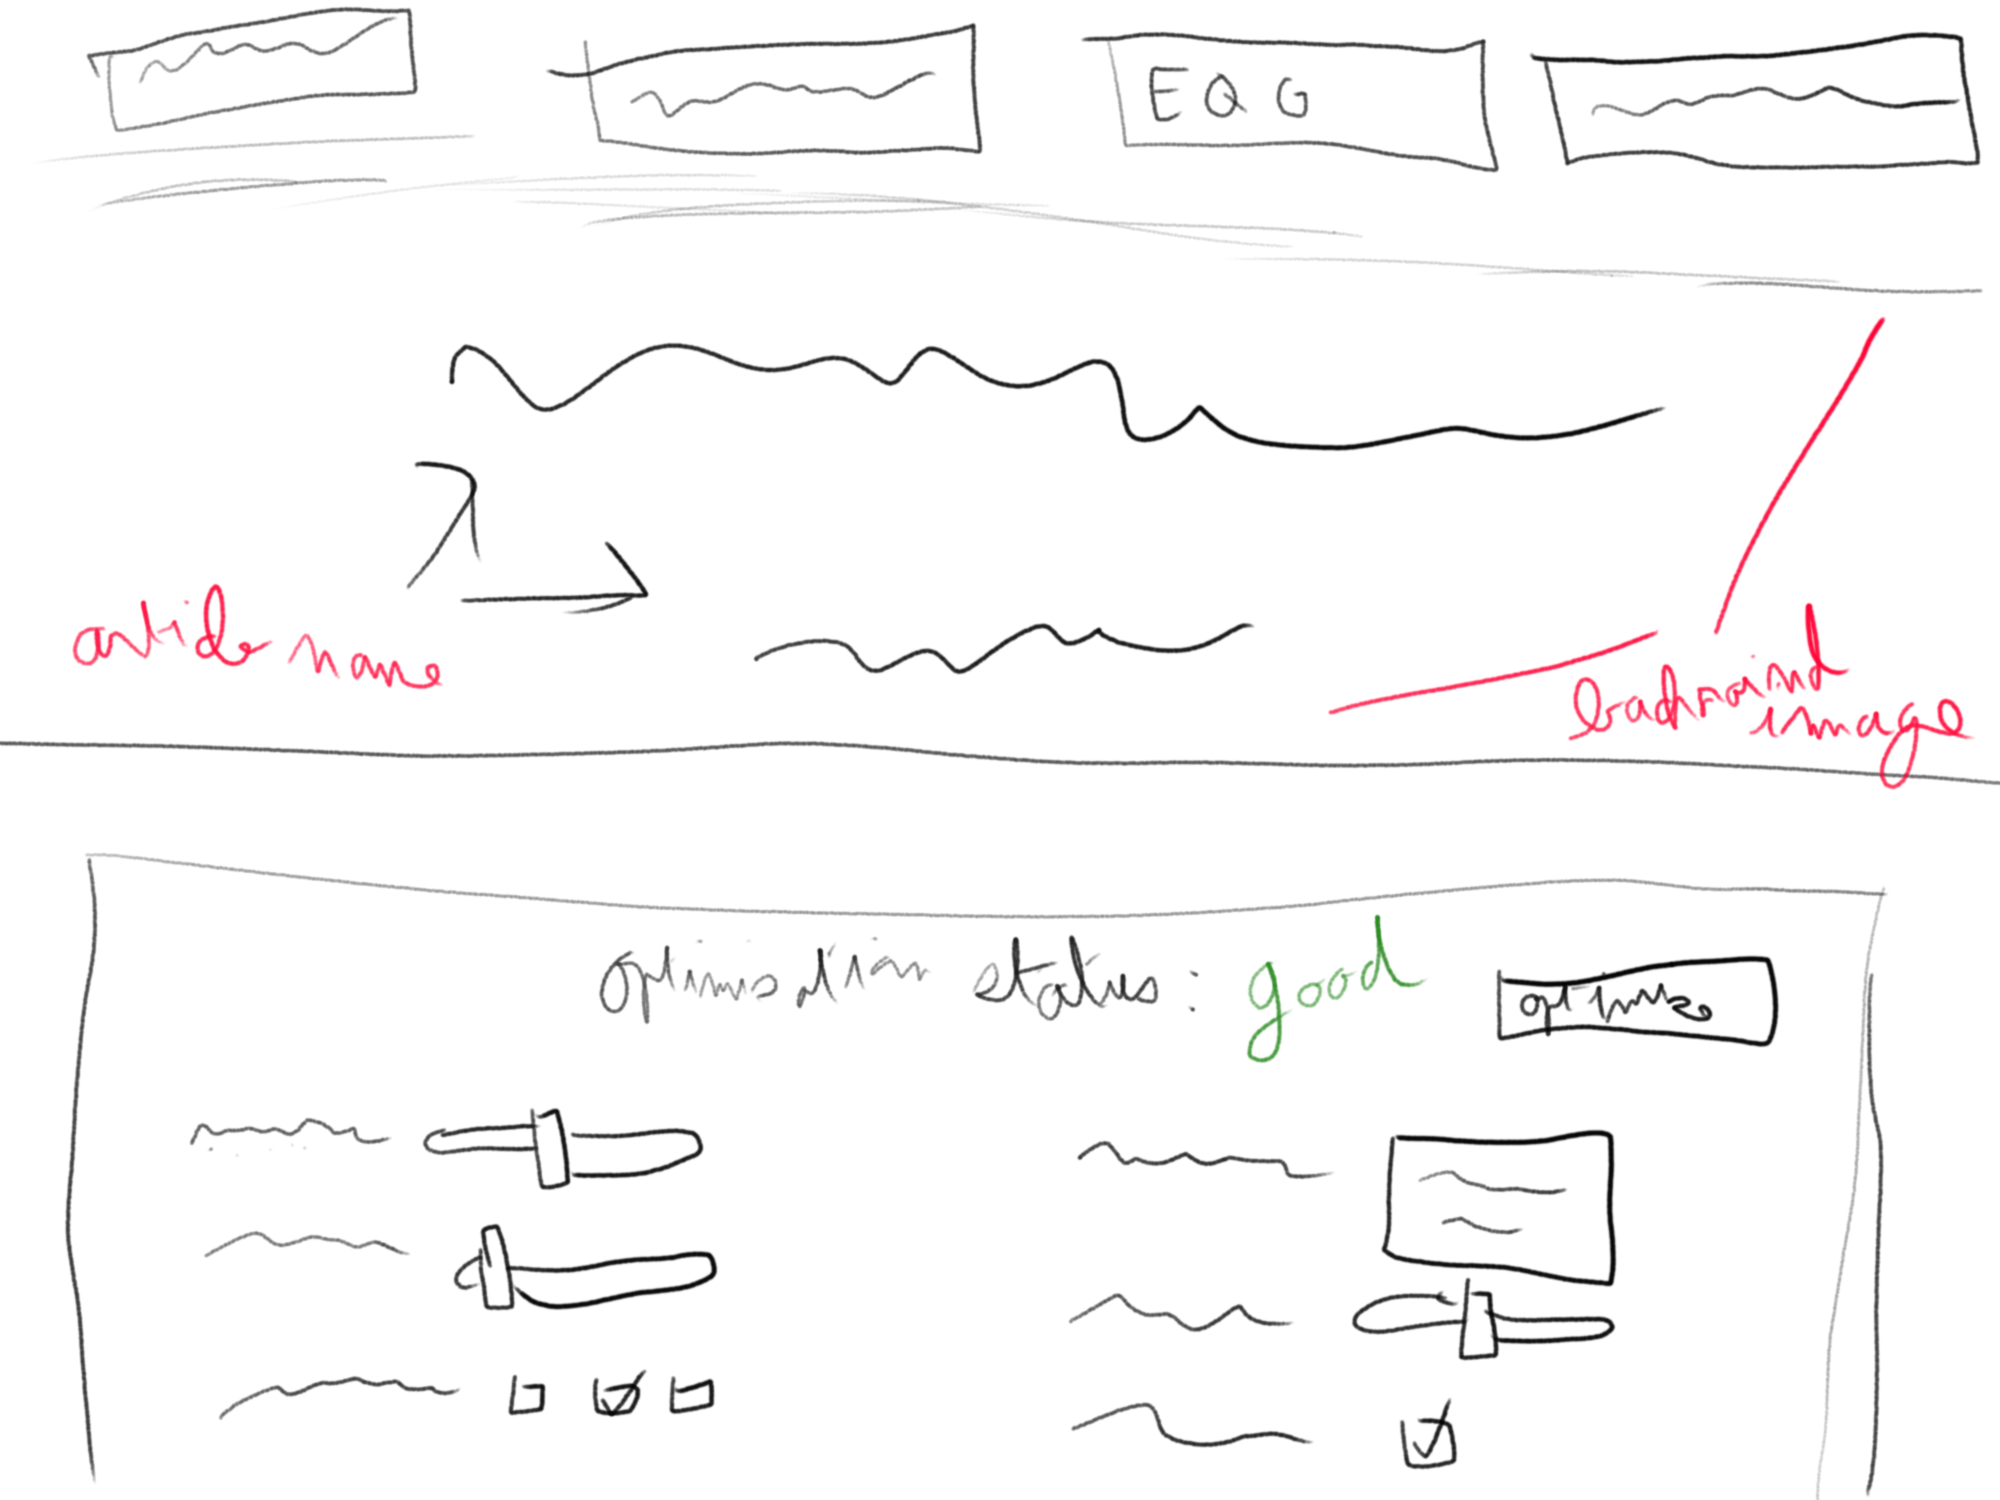 EQG
article name
backround
image
optimisation status: good
optimize